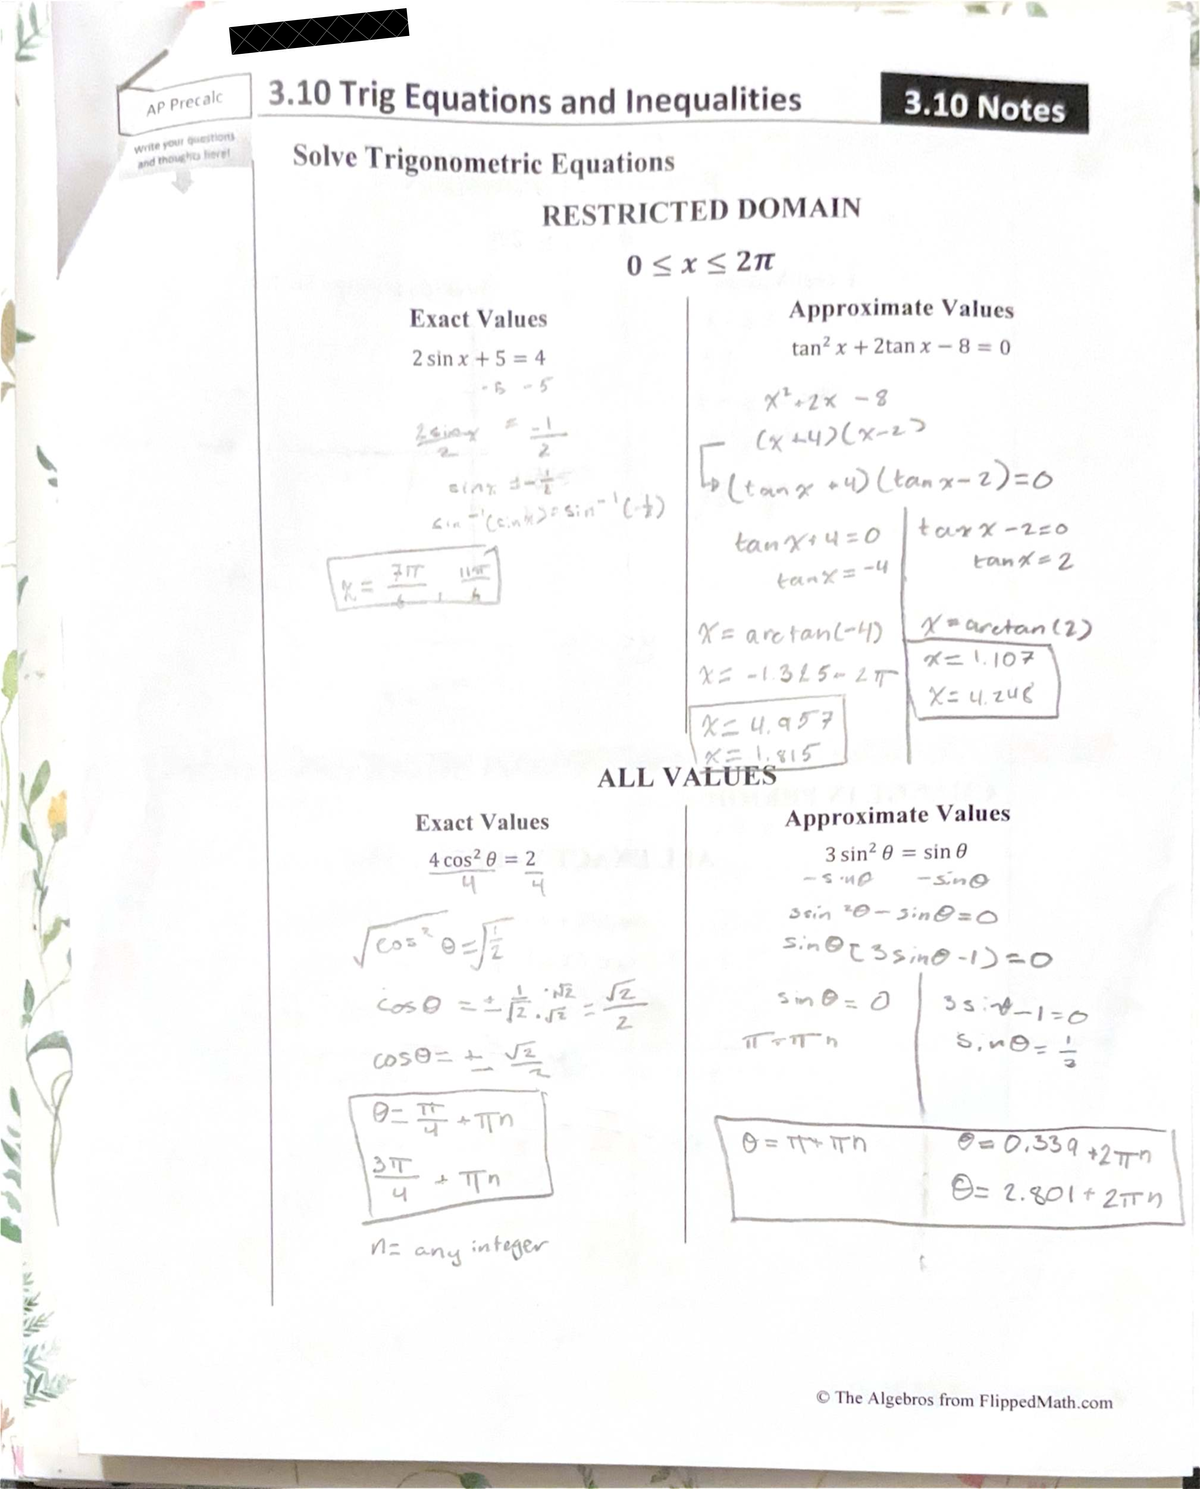 AP Precalc
3.10 Trig Equations and Inequalities
3.10 Notes
Write your questions
and thoughts here!
Solve Trigonometric Equations
RESTRICTED DOMAIN
0 ≤ x ≤ 2π
Exact Values
2 sin x + 5 = 4
-5 -5
2sinx/2 = -1/2
sinx = -1/2
sin⁻¹(sinx) = sin⁻¹(-1/2)
x = 7π/6, 11π/6
Approximate Values
tan² x + 2tan x − 8 = 0
x²+2x -8
(x+4)(x-2)
↳(tanx +4)(tanx-2)=0
tanx+4=0
tanx=-4
x= arctan(-4)
x= -1.325- 2π
x= 4.957
x= 1.815
tanx-2=0
tanx=2
x=arctan(2)
x=1.107
x=4.248
ALL VALUES
Exact Values
4 cos² θ = 2
4 4
√cos² θ = √1/2
cosθ = ± 1/√2 ·√2/·√2 = √2/2
cosθ= ± √2/2
θ= π/4 +πn
3π/4 + πn
n= any integer
Approximate Values
3 sin² θ = sin θ
-sinθ -sinθ
3sin²θ-sinθ=0
sinθ(3sinθ-1)=0
sinθ=0
π+πn
3sinθ-1=0
sinθ=1/3
θ=π+πn
θ=0.339+2πn
θ= 2.801+2πn
© The Algebros from FlippedMath.com